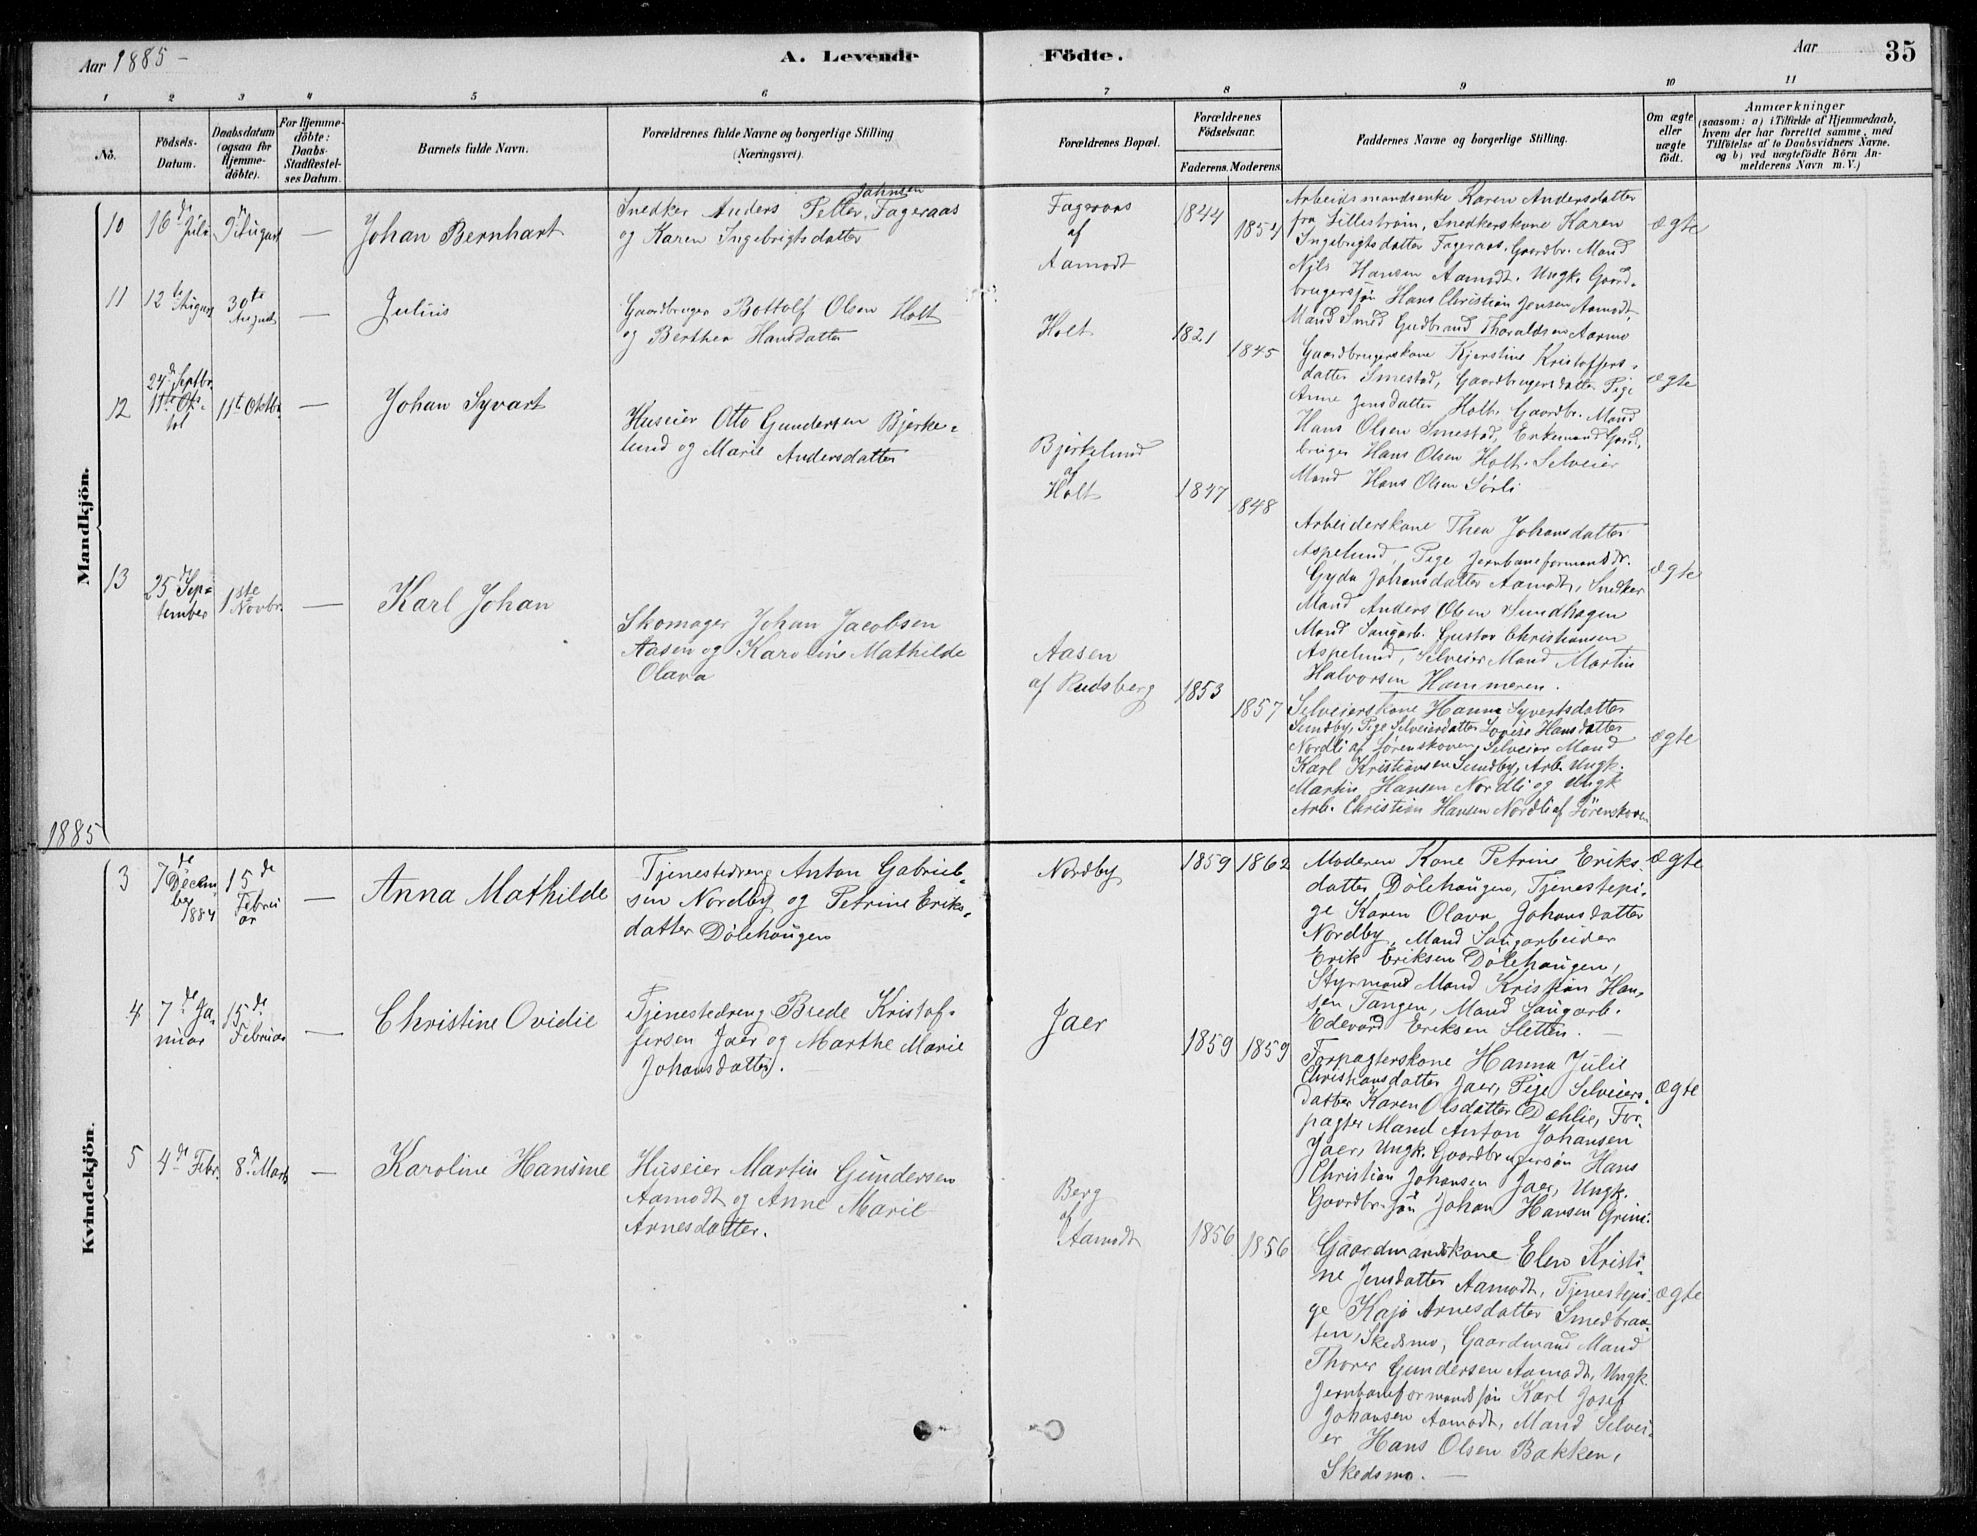 Aar 1885 –
A. Levende Födte.
Aar
35
1 2 3 4 5 6 7 8 9 10 11
No.
Födsels-Datum.
Daabsdatum (ogsaa for Hjemme-döbte).
For Hjemme-döbte: Daabs-Stadfæstel-ses Datum.
Barnets fulde Navn.
Forældrenes fulde Navne og borgerlige Stilling (Næringsvei).
Forældrenes Bopæl.
Forældrenes Födselsaar.
Faderens. Moderens.
Faddernes Navne og borgerlige Stilling.
Om ægte eller uægte födt.
Anmærkninger
(saasom: a) i Tilfælde af Hjemmedaab, hvem der har forrettet samme, med Tilföielse af to Daabsvidners Navne. og b) ved uægtefödte Börn An-melderens Navn m. V.)
Mandkjön.
10
16de Juli
9de August
—
Johan Bernhart
Snedker Anders Petter Johnsen Fageraas
og Karen Ingebrigtsdatter
Fageraas
af
Aamodt
1844
1854
Arbeidsmandsenke Karen Andersdatter
fra Lillestrøm, Snedkerskone Karen
Ingebrigtsdatter Fageraas, Gaardbr. Mand
Nils Hansen Aamodt, Ungk. Gaard-
brugersøn Hans Christian Jensen Aamodt,
Mand Smed Gudbrand Thoraldsen Aarmo
ægte
11
12te August
30te August
—
Julius
Gaardbruger Bottolf Olsen Holt
og Berthea Hansdatter
Holt
1821
1845
Gaardbrugerskone Kjerstine Kristoffers-
datter Smestad, Gaardbrugersdatter Pige
Anne Jensdatter Holt, Gaardbr. Mand
Hans Olsen Smestad, Enkemand Gaard-
bruger Hans Olsen Holt. Selveier
Mand Hans Olsen Sørli
ægte
12
24de Septbr.
11te Oktbr.
—
Johan Syvart
Huseier Otto Gundersen Bjerke-
lund og Marie Andersdatter
Bjerkelund
af
Holt
1847
1848
Arbeiderskone Thea Johansdatter
Aspelund, Pige Jernbaneformandsdr.
Gyda Johansdatter Aamodt, Snedker
Mand Anders Olsen Sundhagen
Mand Saugarb. Gustav Christiansen
Aspelund, Selveier Mand Martin
Halvorsen Hammeren.
ægte
13
25de Sep-
tember
1ste Novbr.
—
Karl Johan
Skomager Johan Jacobsen
Aasen og Karoline Mathilde
Olava
Aasen
af Rudsberg
1853
1857
Selveierskone Hanna Syvertsdatter
Sundby, Pige Selveierdatter Lovise Hansdatter
Nordli af Sørenskoven, Selveier Mand
Karl Kristiansen Sundby, Arb. Ungk.
Martin Hansen Nordli og Ungk
Arb. Christian Hansen Nordli af Sørenskoven
ægte
1885
Kvindekjön.
3
7de Decem-
ber
1884
15de
Febru-
ar
—
Anna Mathilde
Tjenestedreng Anton Gabriel-
sen Nordby og Petrine Eriks-
datter Dølehaugen
Nordby
1859
1862
Moderen Kone Petrine Eriks-
datter Dølehaugen, Tjenestepi-
ge Karen Olava Johansdatter
Nordby, Mand Saugarbeider
Erik Eriksen Dølehaugen,
Styrmand Mand Kristian Han-
sen Tangen, Mand Saugarb.
Edevard Eriksen Sletten. —
ægte
4
7de Ja-
nuar
15de
Februar
—
Christine Ovidie
Tjenestedreng Brede Kristof-
fersen Jaer og Marthe Marie
Johansdatter.
Jaer
1859
1859
Forpagterskone Hanna Julie
Christiansdatter Jaer, Pige Selveiers-
datter Karen Olsdatter Dæhlie, For-
pagter Mand Anton Johansen
Jaer, Ungk. Gaardbrugersøn Hans
Christian Johansen Jaer, Ungk.
Gaardbr. søn Johan Hansen Grini.
ægte
5
4de Febr.
8de Marts
—
Karoline Hansine
Huseier Martin Gundersen
Aamodt og Anne Marie
Arnesdatter.
Berg
af
Aamodt
1856
1856
Gaardmandskone Elen Kristi-
ne Jensdatter Aamodt, Tjenestepi-
ge Kaja Arnesdatter Smedbraa-
ten, Skedsmo, Gaardmand Mand
Thorer Gundersen Aamodt, Ungk.
Jernbaneformandssøn Karl Josef
Johansen Aamodt, Mand Selvei-
er Hans Olsen Bakken,
Skedsmo. —
ægte